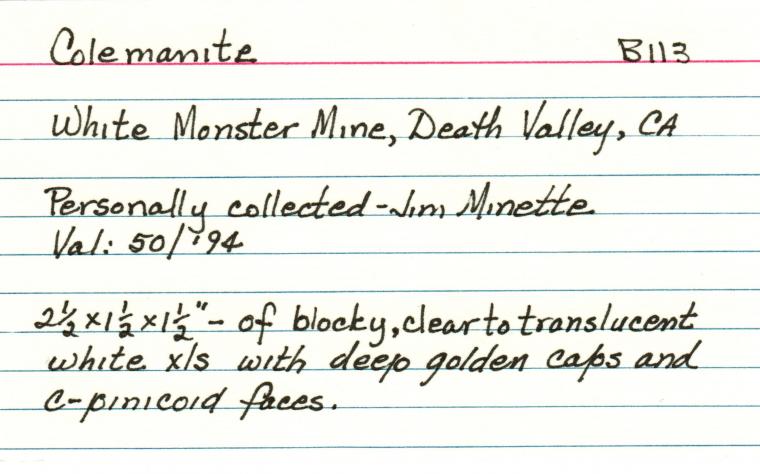 Colemanite B113
White Monster Mine, Death Valley, CA
Personally collected - Jim Minette
Val: 50/'94
2½ x 1½ x 1½" - of blocky, clear to translucent
white xls with deep golden caps and
c-pinicoid faces.